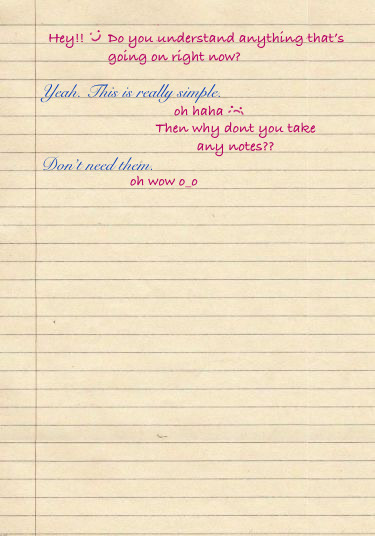 Hey!! :) Do you understand anything that's
going on right now?
Yeah. This is really simple.
oh haha :(
Then why dont you take
any notes??
Don't need them.
oh wow o_o